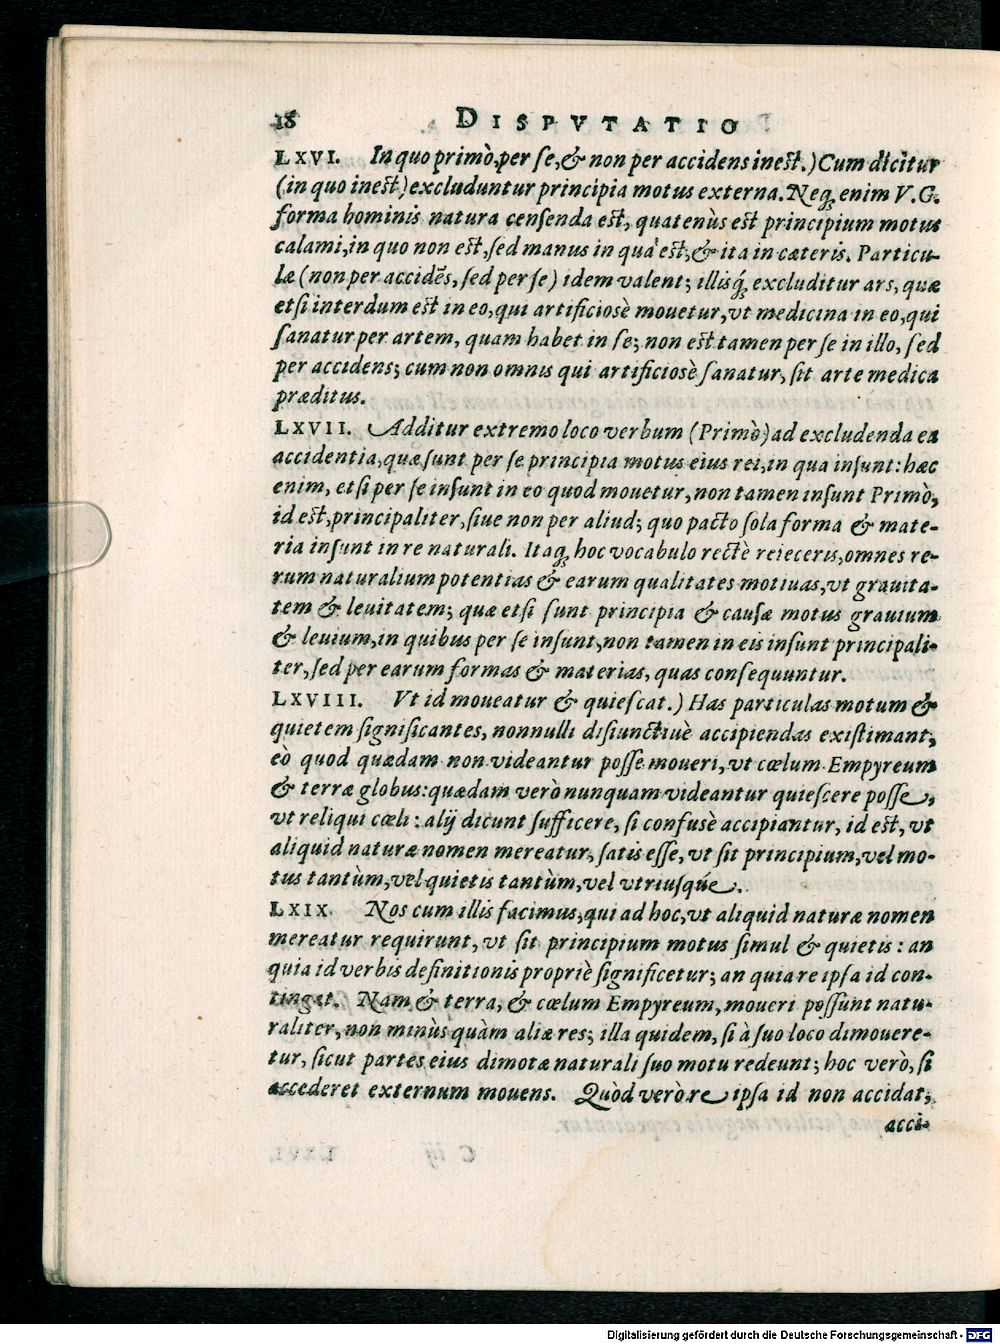 18 DISPVTATIO
LXVI. In quo primò, per se, & non per accidens inest.) Cum dicitur
(in quo inest) excluduntur principia motus externa. Neq; enim V.G.
forma hominis natura censenda est, quatenùs est principium motus
calami, in quo non est, sed manus in qua est, & ita in cæteris. Particu-
læ (non per accidēs, sed per se) idem valent; illisq́; excluditur ars, quæ
etsi interdum est in eo, qui artificiosè mouetur, vt medicina in eo, qui
sanatur per artem, quam habet in se; non est tamen per se in illo, sed
per accidens; cum non omnis qui artificiosè sanatur, sit arte medica
præditus.
LXVII. Additur extremo loco verbum (Primò) ad excludenda ea
accidentia, quæ sunt per se principia motus eius rei, in qua insunt: hæc
enim, etsi per se insunt in eo quod mouetur, non tamen insunt Primò,
id est, principaliter, siue non per aliud; quo pacto sola forma & mate-
ria insunt in re naturali. Itaq; hoc vocabulo rectè reieceris, omnes re-
rum naturalium potentias & earum qualitates motiuas, vt grauita-
tem & leuitatem; quæ etsi sunt principia & causæ motus grauium
& leuium, in quibus per se insunt, non tamen in eis insunt principali-
ter, sed per earum formas & materias, quas consequuntur.
LXVIII. Vt id moueatur & quiescat.) Has particulas motum &
quietem significantes, nonnulli disiunctiuè accipiendas existimant,
eò quod quædam non videantur posse moueri, vt cœlum Empyreum
& terræ globus: quædam verò nunquam videantur quiescere posse,
vt reliqui cœli: alij dicunt sufficere, si confusè accipiantur, id est, vt
aliquid naturæ nomen mereatur, satis esse, vt sit principium, vel mo-
tus tantùm, vel quietis tantùm, vel vtriusq́ue.
LXIX. Nos cum illis facimus, qui ad hoc, vt aliquid naturæ nomen
mereatur requirunt, vt sit principium motus simul & quietis: an
quia id verbis definitionis propriè significetur; an quia re ipsa id con-
tingat. Nam & terra, & cœlum Empyreum, moueri possunt natu-
raliter, non minùs quàm aliæ res; illa quidem, si à suo loco dimouere-
tur, sicut partes eius dimotæ naturali suo motu redeunt; hoc verò, si
accederet externum mouens. Quòd verò re ipsa id non accidat,
acci-
Digitalisierung gefördert durch die Deutsche Forschungsgemeinschaft - DFG